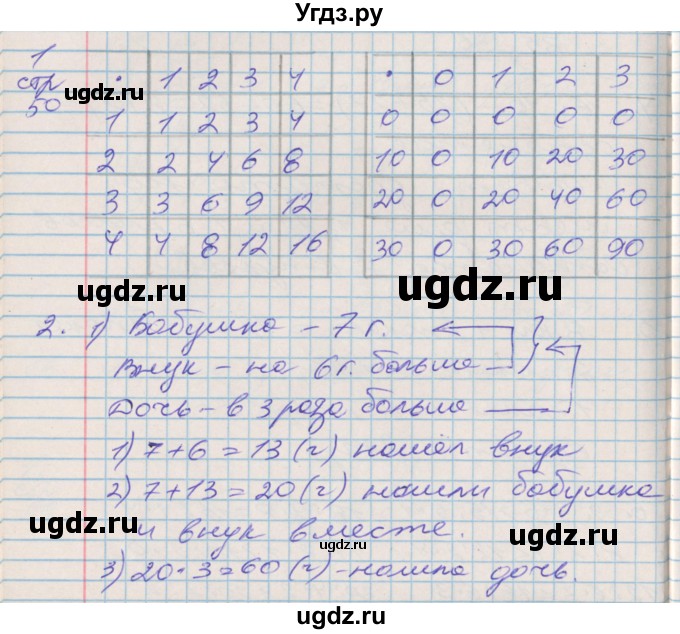 Угдз.ру
1
стр
50
• 1 2 3 4
1 1 2 3 4
2 2 4 6 8
3 3 6 9 12
4 4 8 12 16
• 0 1 2 3
0 0 0 0 0
10 0 10 20 30
20 0 20 40 60
30 0 30 60 90
ugdz.ru
ugdz.ru
ugdz.ru
ugdz.ru
ugdz.ru
ugdz.ru
2. 1) Бабушка – 7 г.
Внук – на 6 г. больше
Дочь – в 3 раза больше
1) 7 + 6 = 13 (г) нашёл внук
2) 7 + 13 = 20 (г) нашли бабушка
и внук вместе.
3) 20 • 3 = 60 (г) – нашла дочь.
ugdz.ru
ugdz.ru
ugdz.ru
ugdz.ru
ugdz.ru
ugdz.ru